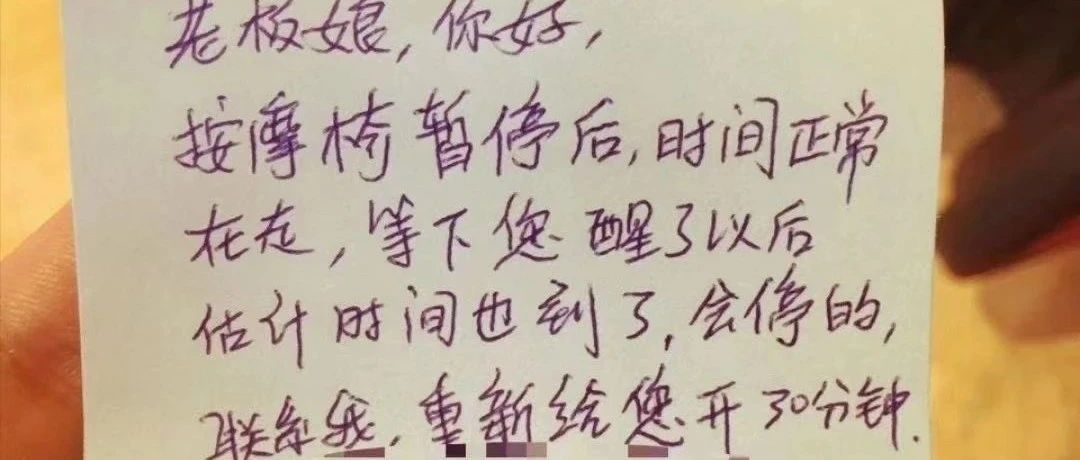 老板娘，你好，
按摩椅暂停后，时间正常
在走，等下您醒了以后
估计时间也到了，会停的，
联系我，重新给您开30分钟.